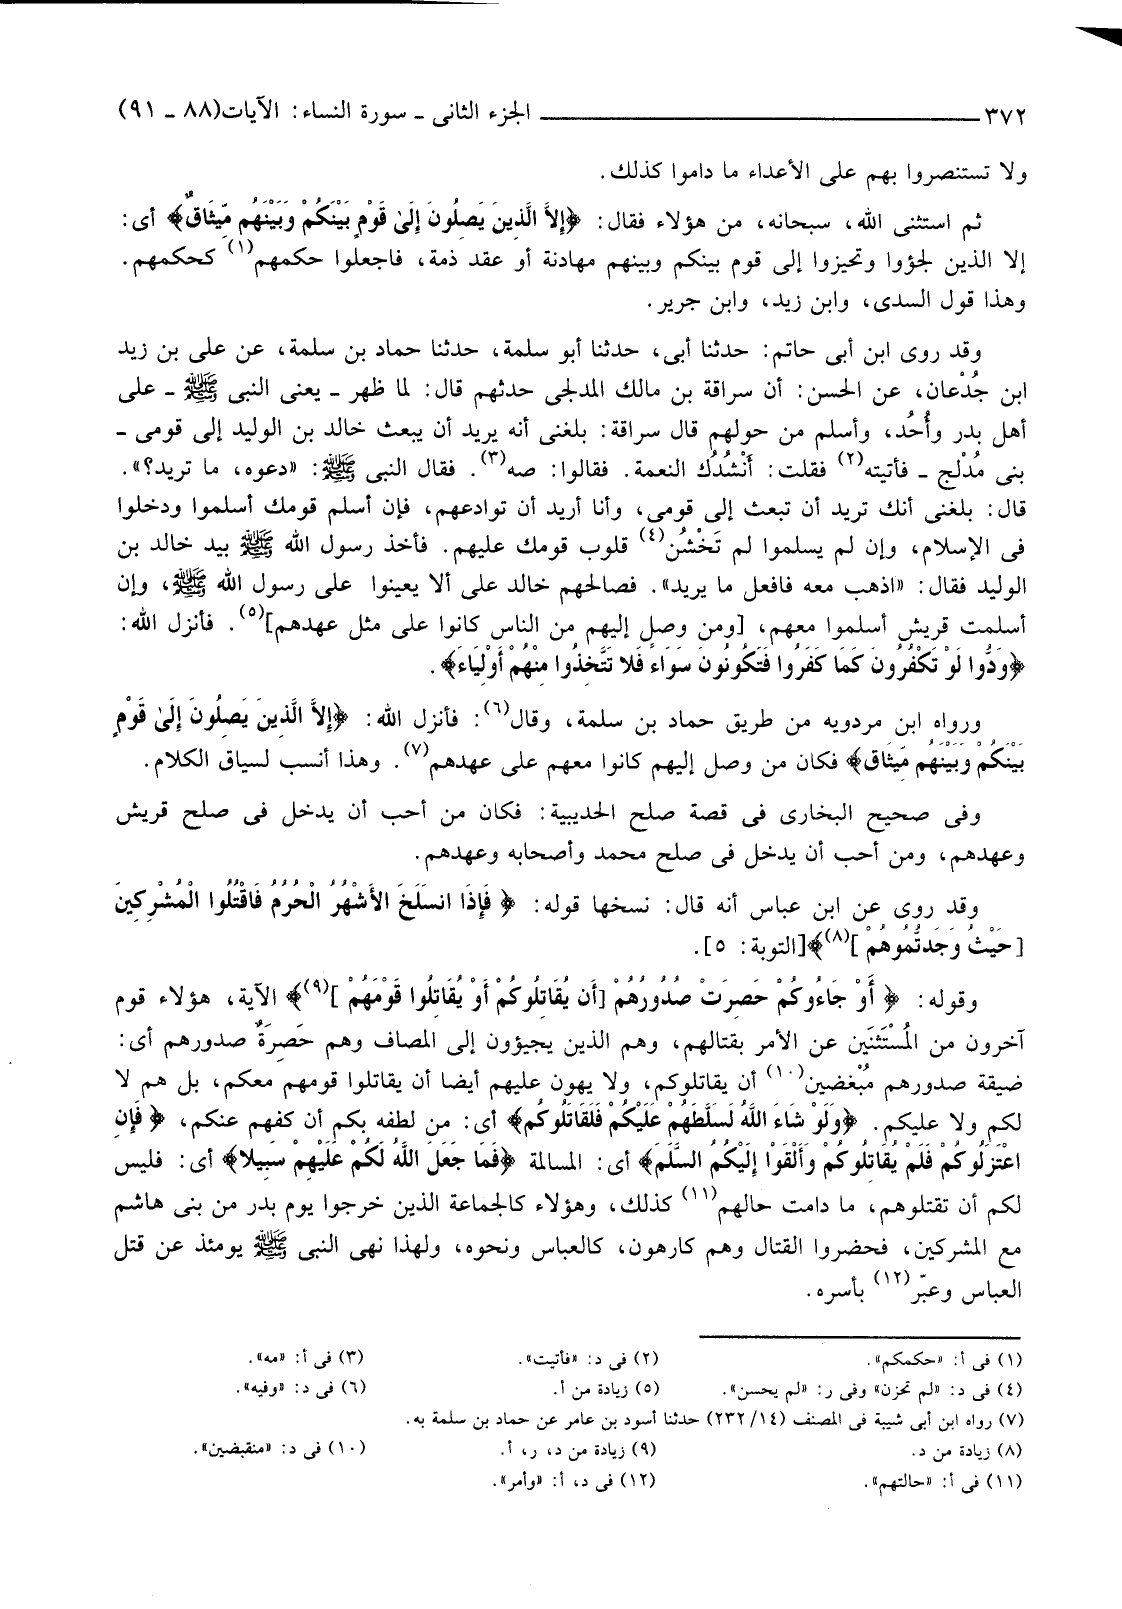 ٣٧٢ ــــــــــــــــــــــــ الجزء الثانى ـ سورة النساء: الآيات(٨٨ ـ ٩١)
ولا تستنصروا بهم على الأعداء ما داموا كذلك.
ثم استثنى الله، سبحانه، من هؤلاء فقال: ﴿إِلاَّ الَّذِينَ يَصِلُونَ إِلَىٰ قَوْمٍ بَيْنَكُمْ وَبَيْنَهُم مِّيثَاقٌ﴾ أى:
إلا الذين لجؤوا وتحيزوا إلى قوم بينكم وبينهم مهادنة أو عقد ذمة، فاجعلوا حكمهم(١) كحكمهم.
وهذا قول السدى، وابن زيد، وابن جرير.
وقد روى ابن أبى حاتم: حدثنا أبى، حدثنا أبو سلمة، حدثنا حماد بن سلمة، عن على بن زيد
ابن جُدْعان، عن الحسن: أن سراقة بن مالك المدلجى حدثهم قال: لما ظهر ـ يعنى النبى ﷺ ـ على
أهل بدر وأُحُد، وأسلم من حولهم قال سراقة: بلغنى أنه يريد أن يبعث خالد بن الوليد إلى قومى ـ
بنى مُدْلج ـ فأتيته(٢) فقلت: أَنْشُدُك النعمة. فقالوا: صه(٣). فقال النبى ﷺ: «دعوه، ما تريد؟».
قال: بلغنى أنك تريد أن تبعث إلى قومى، وأنا أريد أن توادعهم، فإن أسلم قومك أسلموا ودخلوا
فى الإسلام، وإن لم يسلموا لم تَخْشُن(٤) قلوب قومك عليهم. فأخذ رسول الله ﷺ بيد خالد بن
الوليد فقال: «اذهب معه فافعل ما يريد». فصالحهم خالد على ألا يعينوا على رسول الله ﷺ، وإن
أسلمت قريش أسلموا معهم، [ومن وصل إليهم من الناس كانوا على مثل عهدهم](٥). فأنزل الله:
﴿وَدُّوا لَوْ تَكْفُرُونَ كَمَا كَفَرُوا فَتَكُونُونَ سَوَاءً فَلا تَتَّخِذُوا مِنْهُمْ أَوْلِيَاءَ﴾.
ورواه ابن مردويه من طريق حماد بن سلمة، وقال(٦): فأنزل الله: ﴿إِلاَّ الَّذِينَ يَصِلُونَ إِلَىٰ قَوْمٍ
بَيْنَكُمْ وَبَيْنَهُم مِّيثَاق﴾ فكان من وصل إليهم كانوا معهم على عهدهم(٧). وهذا أنسب لسياق الكلام.
وفى صحيح البخارى فى قصة صلح الحديبية: فكان من أحب أن يدخل فى صلح قريش
وعهدهم، ومن أحب أن يدخل فى صلح محمد وأصحابه وعهدهم.
وقد روى عن ابن عباس أنه قال: نسخها قوله: ﴿ فَإِذَا انسَلَخَ الأَشْهُرُ الْحُرُمُ فَاقْتُلُوا الْمُشْرِكِينَ
[حَيْثُ وَجَدتُّمُوهُمْ ](٨)﴾[التوبة: ٥].
وقوله: ﴿ أَوْ جَاءُوكُمْ حَصِرَتْ صُدُورُهُمْ [أَن يُقَاتِلُوكُمْ أَوْ يُقَاتِلُوا قَوْمَهُمْ ](٩)﴾ الآية، هؤلاء قوم
آخرون من المُسْتَثنَين عن الأمر بقتالهم، وهم الذين يجيؤون إلى المصاف وهم حَصِرَةٌ صدورهم أى:
ضيقة صدورهم مُبْغضين(١٠) أن يقاتلوكم، ولا يهون عليهم أيضا أن يقاتلوا قومهم معكم، بل هم لا
لكم ولا عليكم. ﴿وَلَوْ شَاءَ اللَّهُ لَسَلَّطَهُمْ عَلَيْكُمْ فَلَقَاتَلُوكُم﴾ أى: من لطفه بكم أن كفهم عنكم، ﴿ فَإِنِ
اعْتَزَلُوكُمْ فَلَمْ يُقَاتِلُوكُمْ وَأَلْقَوْا إِلَيْكُمُ السَّلَم﴾ أى: المسالمة ﴿فَمَا جَعَلَ اللَّهُ لَكُمْ عَلَيْهِمْ سَبِيلا﴾ أى: فليس
لكم أن تقتلوهم، ما دامت حالهم(١١) كذلك، وهؤلاء كالجماعة الذين خرجوا يوم بدر من بنى هاشم
مع المشركين، فحضروا القتال وهم كارهون، كالعباس ونحوه، ولهذا نهى النبى ﷺ يومئذ عن قتل
العباس وعبّر(١٢) بأسره.
(١) فى أ: «حكمكم». (٢) فى د: «فأتيت». (٣) فى أ: «مه».
(٤) فى د: «لم تحزن» وفى ر: «لم يحسن». (٥) زيادة من أ. (٦) فى د: «وفيه».
(٧) رواه ابن أبى شيبة فى المصنف (٢٣٢/١٤) حدثنا أسود بن عامر عن حماد بن سلمة به.
(٨) زيادة من د. (٩) زيادة من د، ر، أ. (١٠) فى د: «منقبضين».
(١١) فى أ: «حالتهم». (١٢) فى د، أ: «وأمر».